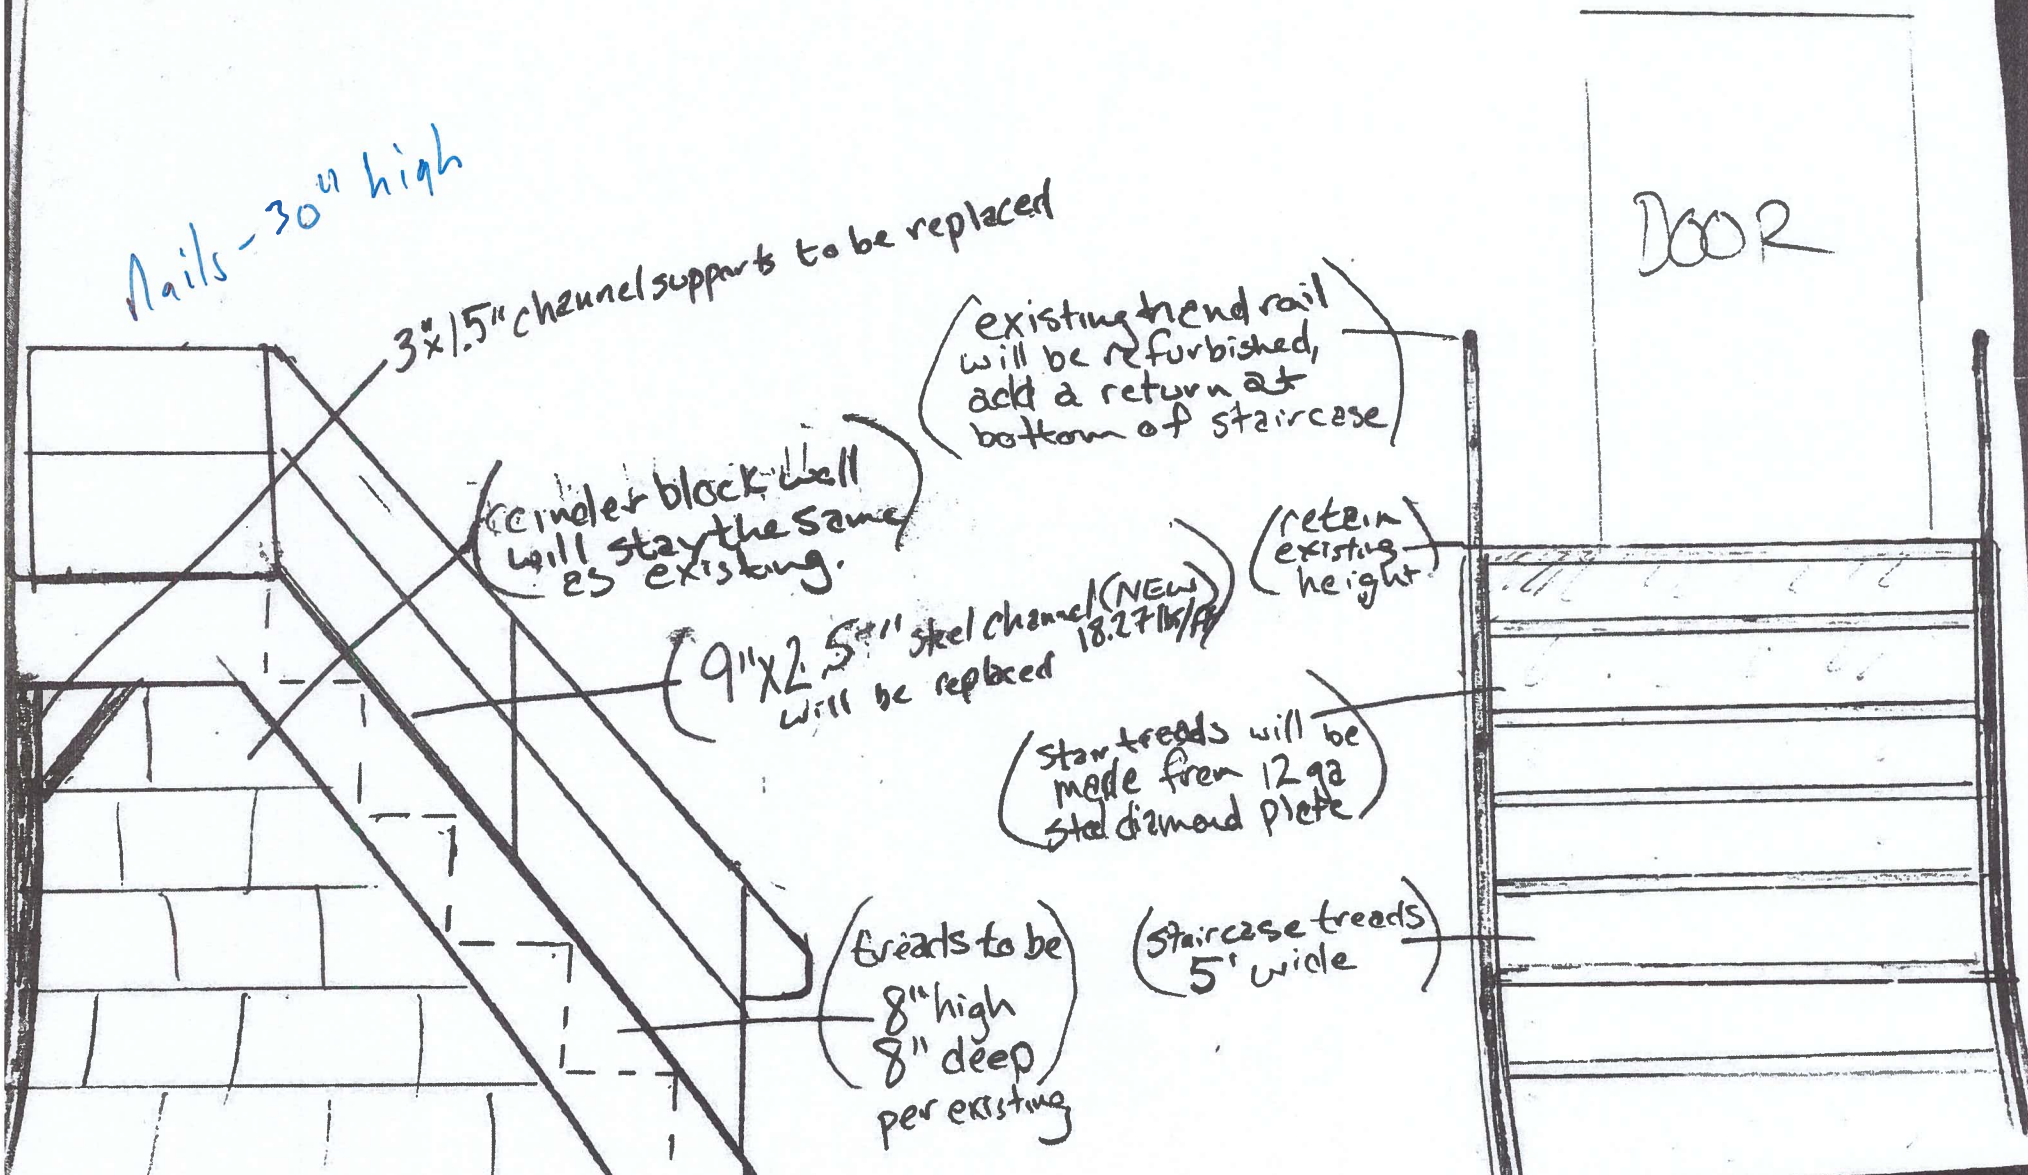 Rails - 30" high
3"x1.5" channel supports to be replaced
existing hend rail
will be refurbished,
add a return at
bottom of staircase
DOOR
cinder block wall
will stay the same
as existing.
retain
existing
height
9"x2.5" steel channel (NEW)
will be replaced 18.27 lb/ft
stair treads will be
made from 12 ga
steel diamond plate
treads to be
8" high
8" deep
per existing
staircase treads
5' wide